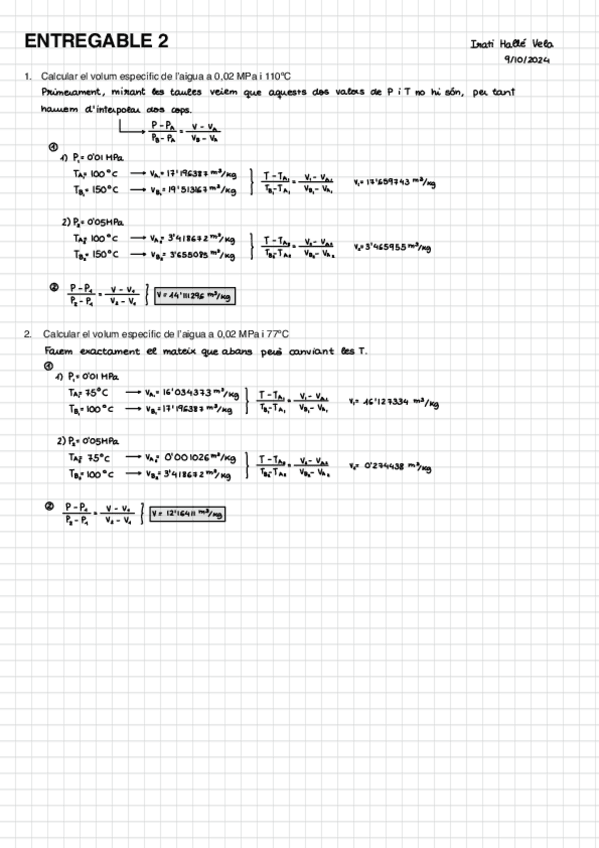 ENTREGABLE 2
Irati Hallé Vela
9/10/2024
1. Calcular el volum específic de l'aigua a 0,02 MPa i 110ºC
Primerament, mirant les taules veiem que aquests dos valors de P i T no hi són, per tant
haurem d'interpolar dos cops.
(P - PA)/(PB - PA) = (V - VA)/(VB - VA)
①
1) P₁= 0'01 MPa
TA₁= 100°C → VA₁= 17'196387 m³/kg
TB₁= 150°C → VB₁= 19'513167 m³/kg
(T - TA₁)/(TB₁ - TA₁) = (V₁ - VA₁)/(VB₁ - VA₁) V₁= 17'659743 m³/kg
2) P₂= 0'05MPa
TA₂= 100°C → VA₂= 3'418672 m³/kg
TB₂= 150°C → VB₂= 3'655085 m³/kg
(T - TA₂)/(TB₂ - TA₂) = (V₂ - VA₂)/(VB₂ - VA₂) V₂= 3'465955 m³/kg
② (P - P₁)/(P₂ - P₁) = (V - V₁)/(V₂ - V₁) } V = 14'111296 m³/kg
2. Calcular el volum específic de l'aigua a 0,02 MPa i 77ºC
Farem exactament el mateix que abans però canviant les T.
①
1) P₁= 0'01 MPa
TA₁= 75°C → VA₁= 16'034373 m³/kg
TB₁= 100°C → VB₁= 17'196387 m³/kg
(T - TA₁)/(TB₁ - TA₁) = (V₁ - VA₁)/(VB₁ - VA₁) V₁= 16'127334 m³/kg
2) P₂= 0'05MPa
TA₂= 75°C → VA₂= 0'001026 m³/kg
TB₂= 100°C → VB₂= 3'418672 m³/kg
(T - TA₂)/(TB₂ - TA₂) = (V₂ - VA₂)/(VB₂ - VA₂) V₂= 0'274438 m³/kg
② (P - P₁)/(P₂ - P₁) = (V - V₁)/(V₂ - V₁) } V = 12'16411 m³/kg